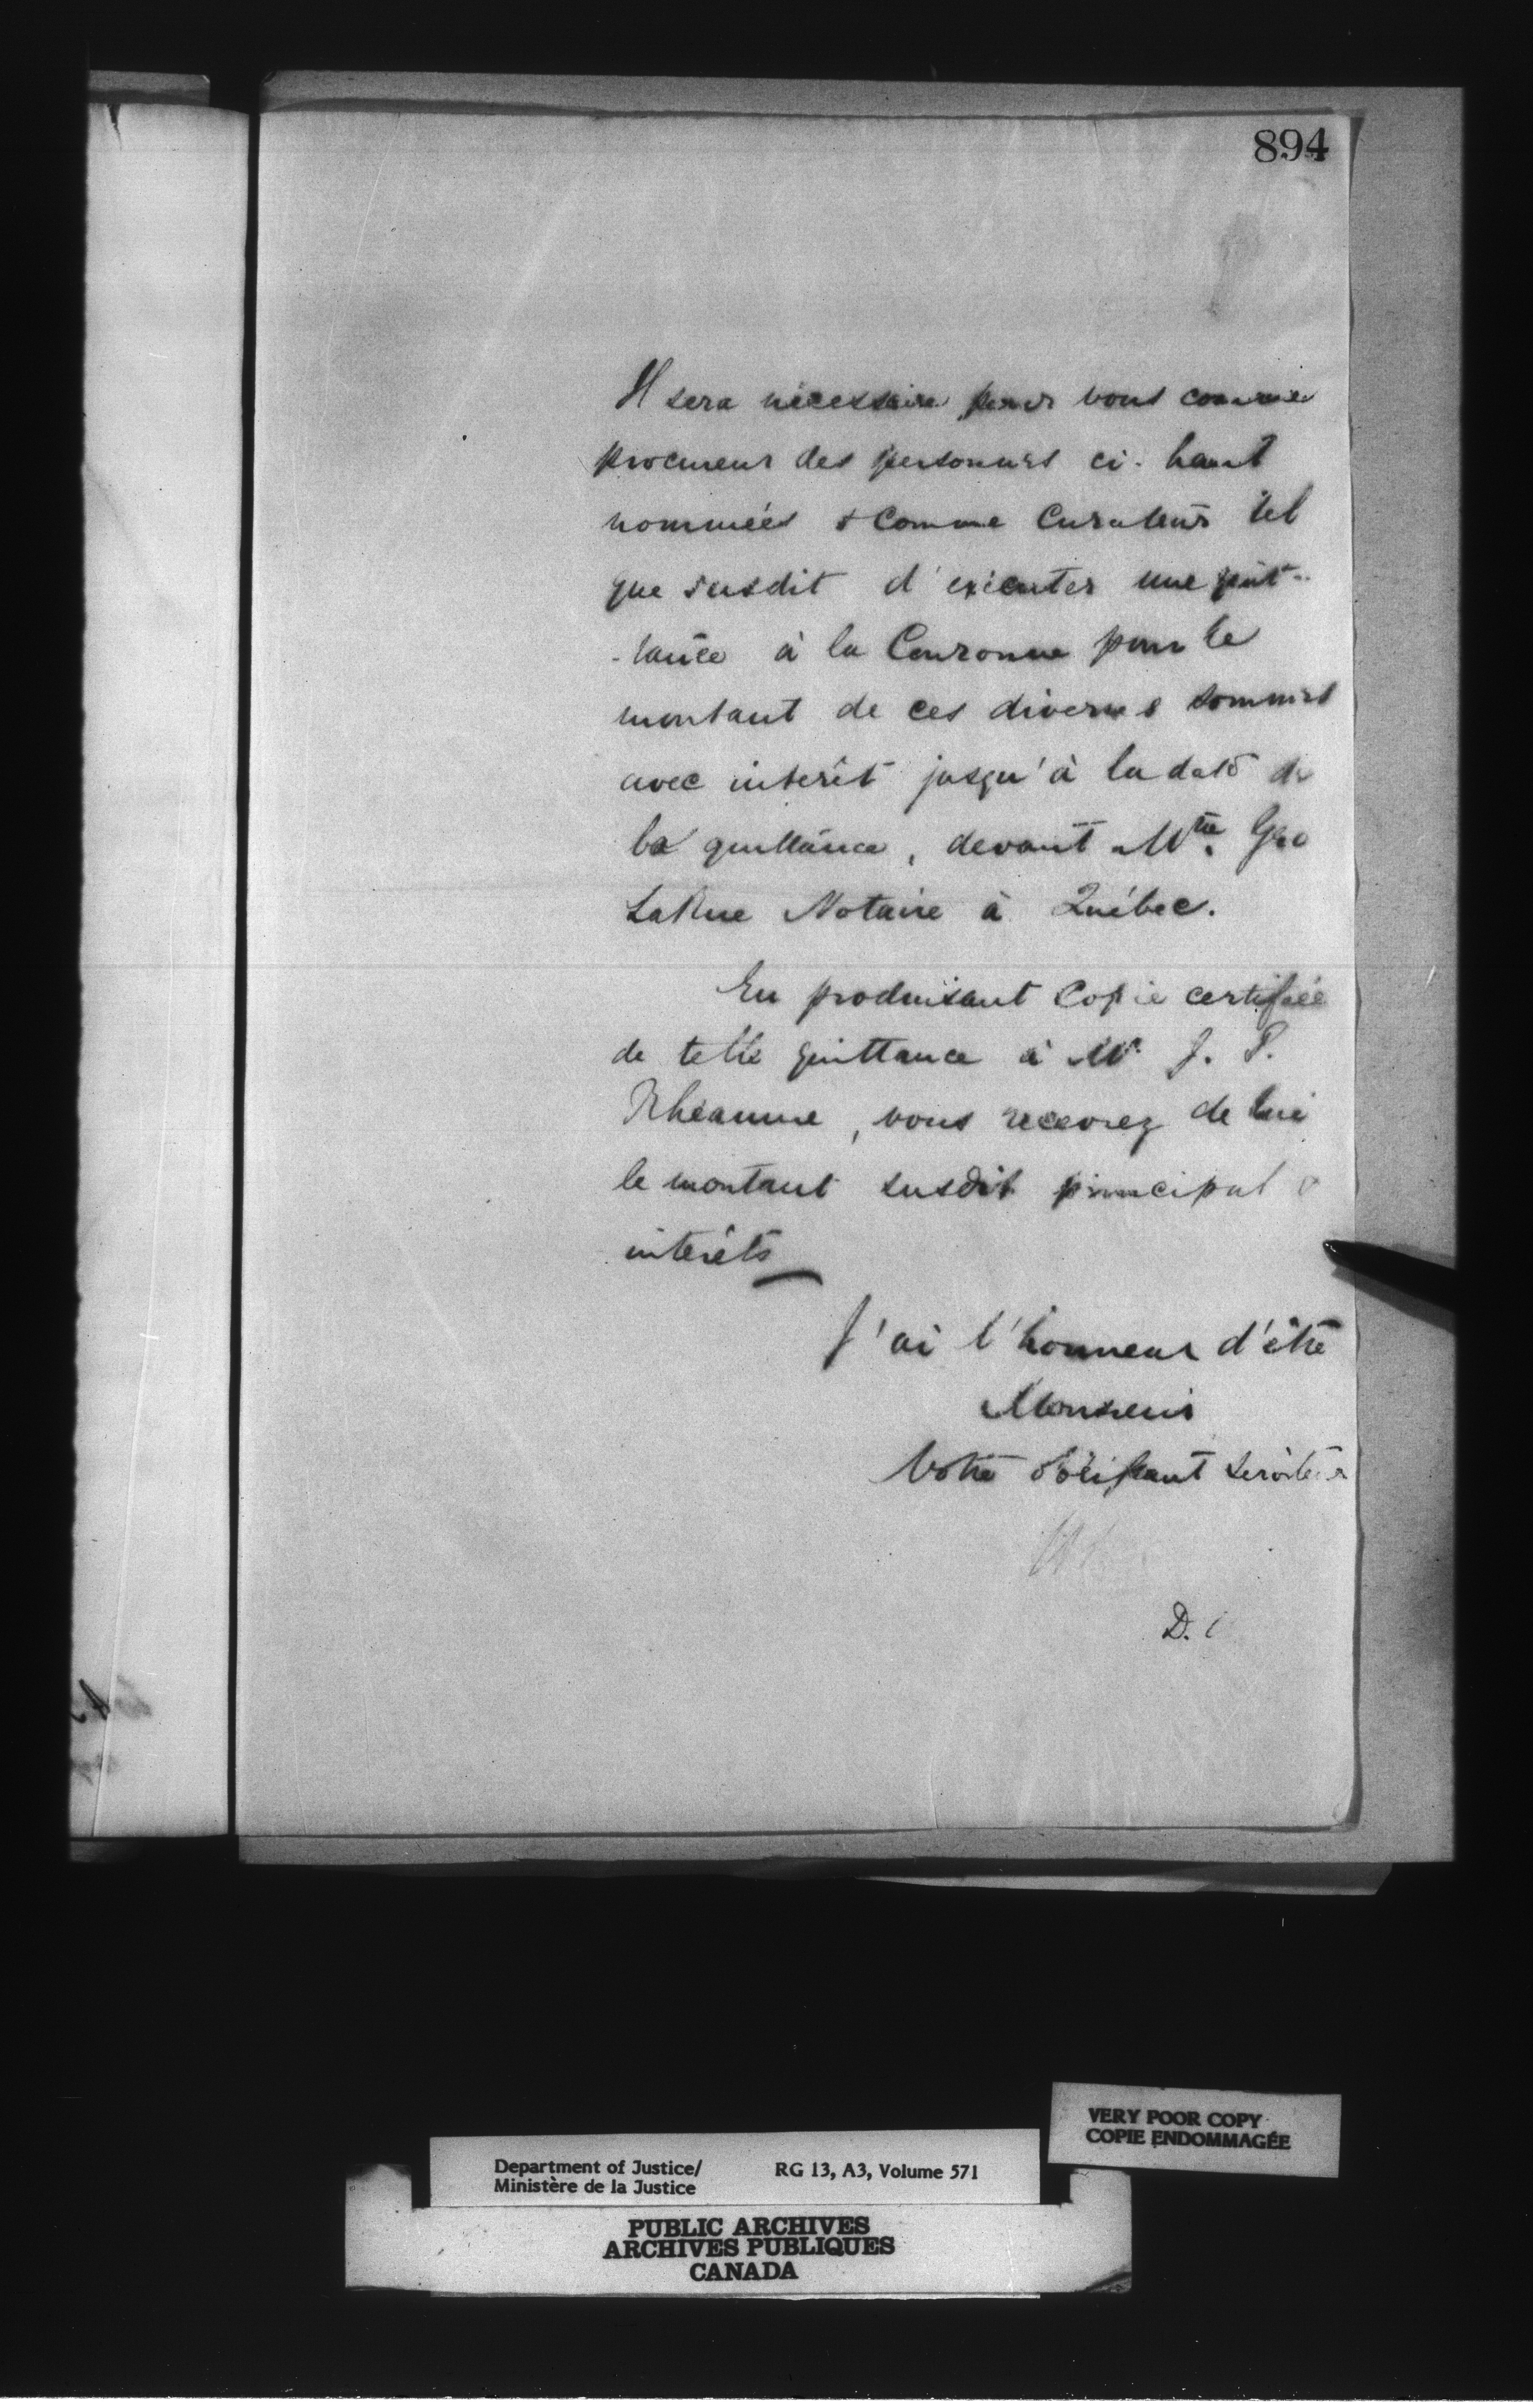 894
Il sera nécessaire pour vous comme
procureur des personnes ci-haut
nommées & comme Curateur tel
que susdit d'exécuter une quit-
-tance à la Couronne pour le
montant de ces diverses sommes
avec intérêt jusqu'à la date de
la quittance, devant Mtre Geo
LaRue Notaire à Québec.
En produisant Copie certifiée
de telle quittance à Mr J. P.
Rhéaume, vous recevrez de lui
le montant susdit principal &
intérêts
J'ai l'honneur d'être
Monsieur
Votre obéissant serviteur
D.
VERY POOR COPY
COPIE ENDOMMAGÉE
Department of Justice/ RG 13, A3, Volume 571
Ministère de la Justice
PUBLIC ARCHIVES
ARCHIVES PUBLIQUES
CANADA